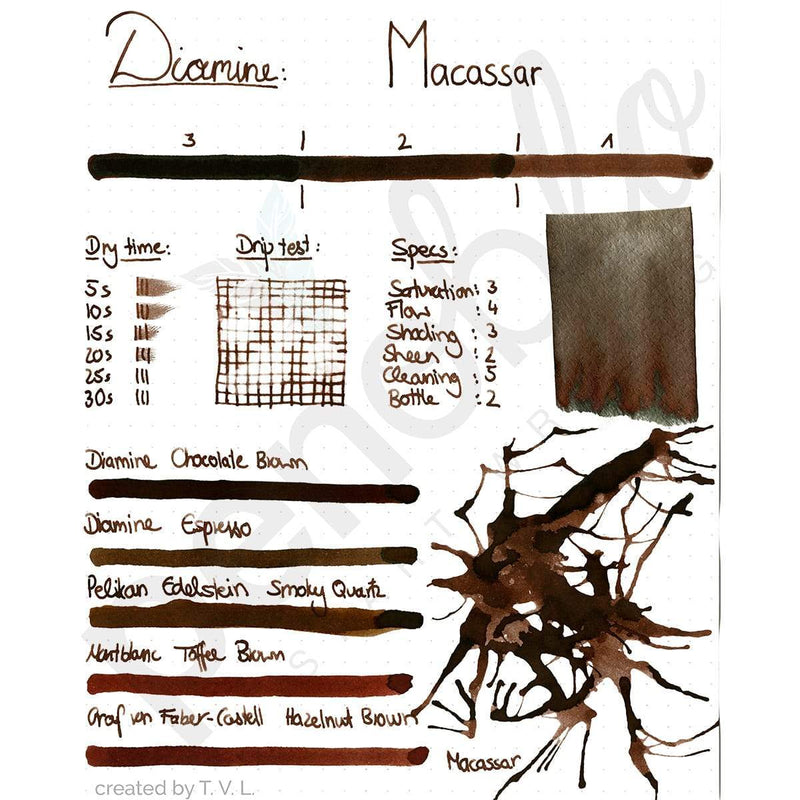 Diamine: Macassar
3 2 1
Dry time: Drip test: Specs:
5s Saturation: 3
10s Flow : 4
15s Shading : 3
20s Sheen : 2
25s Cleaning : 5
30s Bottle : 2
Diamine Chocolate Brown
Diamine Espresso
Pelikan Edelstein Smoky Quartz
Montblanc Toffee Brown
Graf von Faber-Castell Hazelnut Brown
Macassar
created by T. V. L.
penoblo